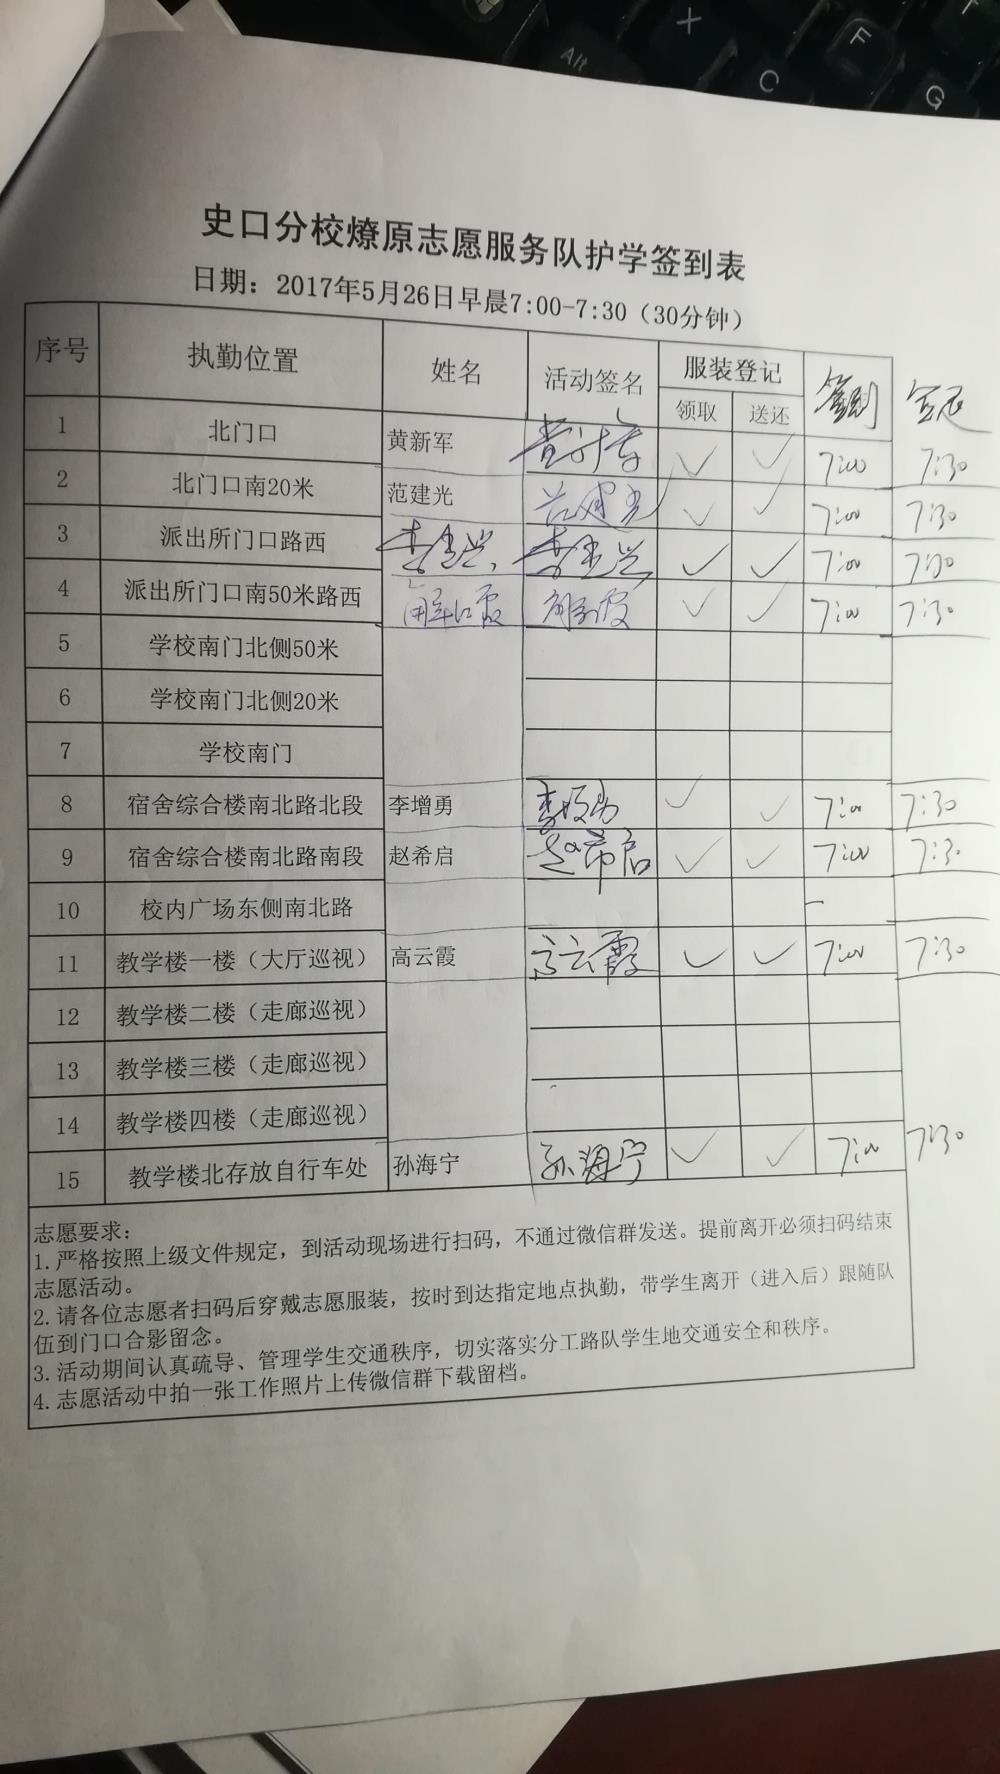 史口分校燎原志愿服务队护学签到表
日期：2017年5月26日早晨7:00-7:30（30分钟）
序号 执勤位置 姓名 活动签名 服装登记 签到 签退
领取 送还
1 北门口 黄新军 黄新军 ✓ ✓ 7:00 7:30
2 北门口南20米 范建光 范建光 ✓ ✓ 7:00 7:30
3 派出所门口路西 ✓ ✓ 7:00 7:30
4 派出所门口南50米路西 ✓ ✓ 7:00 7:30
5 学校南门北侧50米
6 学校南门北侧20米
7 学校南门
8 宿舍综合楼南北路北段 李增勇 李增勇 ✓ ✓ 7:00 7:30
9 宿舍综合楼南北路南段 赵希启 赵希启 ✓ ✓ 7:00 7:30
10 校内广场东侧南北路
11 教学楼一楼（大厅巡视） 高云霞 高云霞 ✓ ✓ 7:00 7:30
12 教学楼二楼（走廊巡视）
13 教学楼三楼（走廊巡视）
14 教学楼四楼（走廊巡视）
15 教学楼北存放自行车处 孙海宁 孙海宁 ✓ ✓ 7:00 7:30
志愿要求：
1.严格按照上级文件规定，到活动现场进行扫码，不通过微信群发送。提前离开必须扫码结束
志愿活动。
2.请各位志愿者扫码后穿戴志愿服装，按时到达指定地点执勤，带学生离开（进入后）跟随队
伍到门口合影留念。
3.活动期间认真疏导、管理学生交通秩序，切实落实分工路队学生地交通安全和秩序。
4.志愿活动中拍一张工作照片上传微信群下载留档。
Alt
X
C
F
G